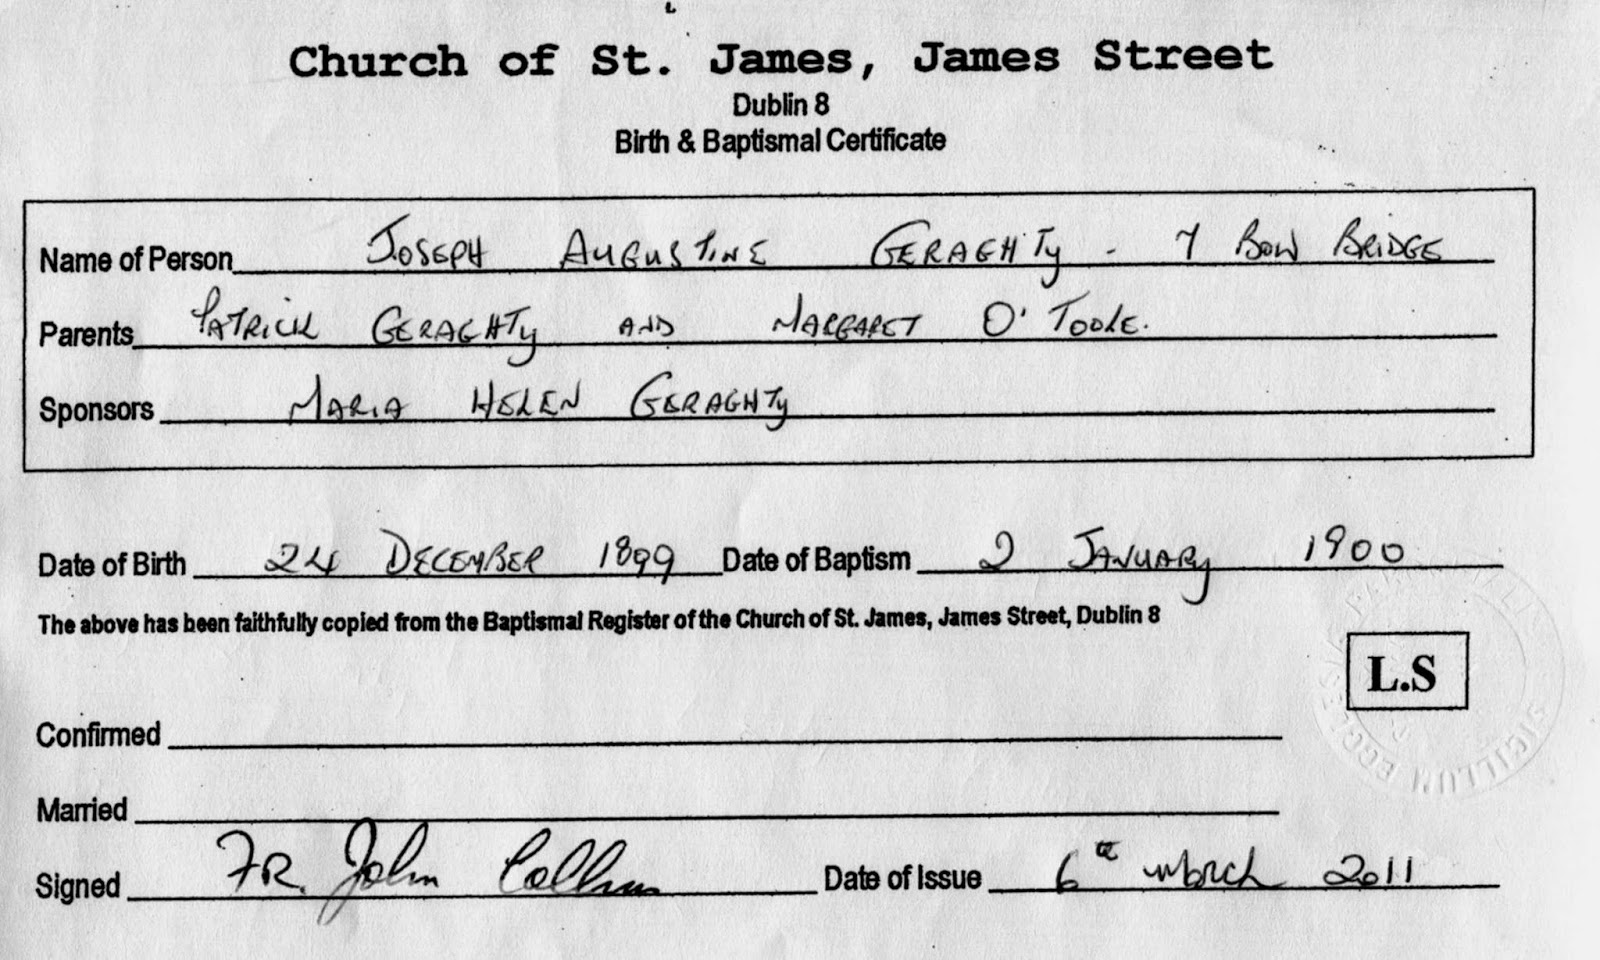 Church of St. James, James Street
Dublin 8
Birth & Baptismal Certificate
Name of Person JOSEPH AUGUSTINE GERAGHTY - 7 BOW BRIDGE
Parents PATRICK GERAGHTY AND MARGARET O'TOOLE.
Sponsors MARIA HELEN GERAGHTY
Date of Birth 24 DECEMBER 1899 Date of Baptism 2 JANUARY 1900
The above has been faithfully copied from the Baptismal Register of the Church of St. James, James Street, Dublin 8
L.S
SIGILLUM
Confirmed
Married
Signed FR. John Date of Issue 6th March 2011